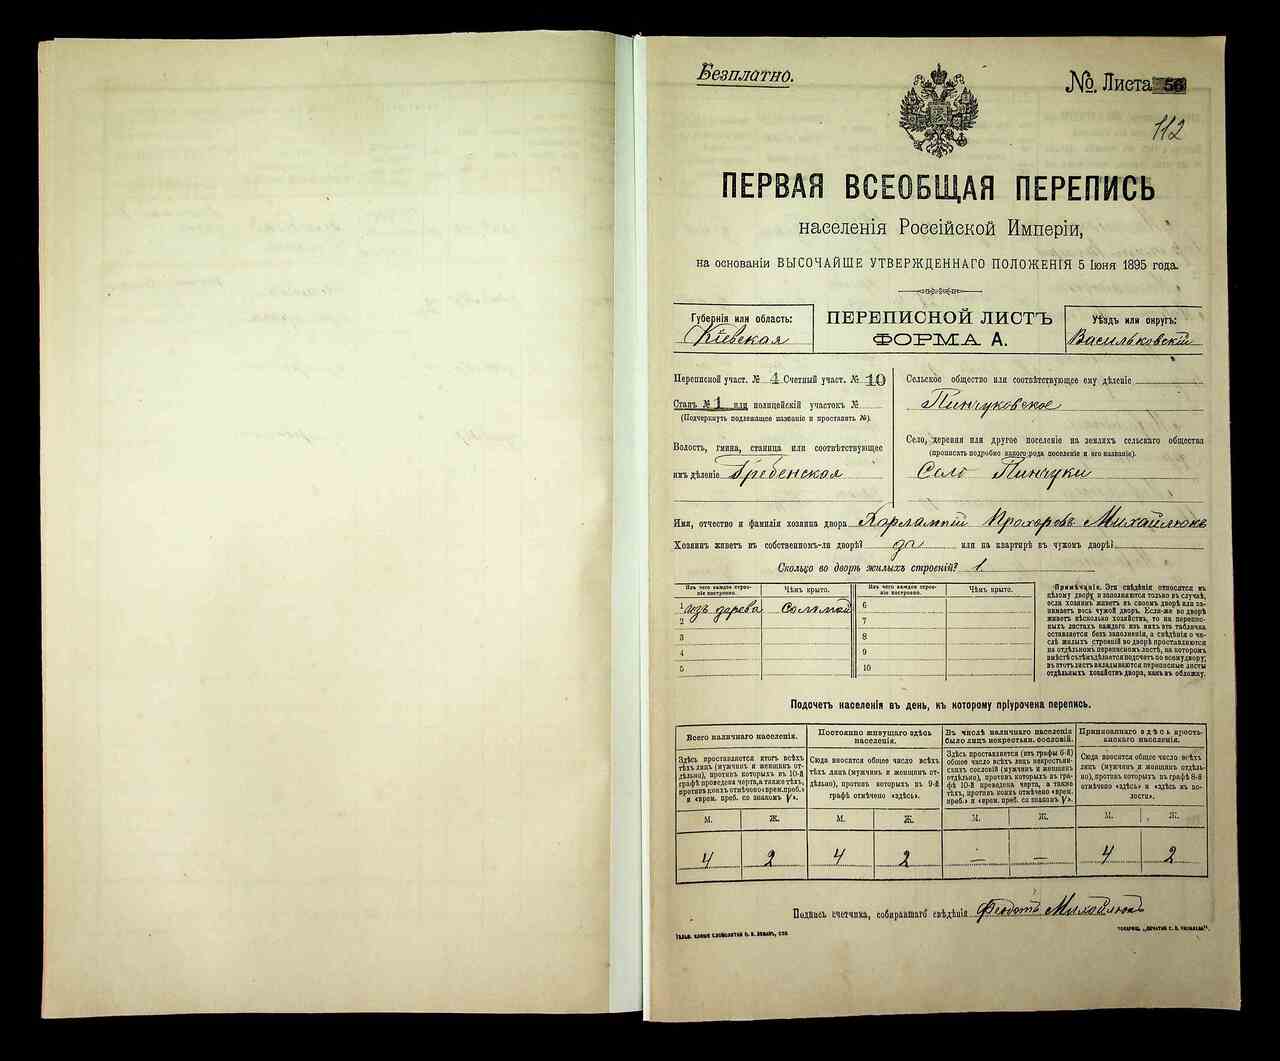 Безплатно.
№. Листа 56
112
ПЕРВАЯ ВСЕОБЩАЯ ПЕРЕПИСЬ
населенія Россійской Имперіи,
на основаніи ВЫСОЧАЙШЕ УТВЕРЖДЕННАГО ПОЛОЖЕНІЯ 5 Іюня 1895 года.
Губернія или область:
Кіевская
ПЕРЕПИСНОЙ ЛИСТЪ
ФОРМА А.
Уѣздъ или округъ:
Васильковскій
Переписной участ. № 4 Счетный участ. № 10
Станъ № 1 или полицейскій участокъ №
(Подчеркнуть подлежащее названіе и проставить №).
Волость, гмина, станица или соотвѣтствующее
имъ дѣленіе Гребенская
Сельское общество или соотвѣтствующее ему дѣленіе
Пинчуковское
Село, деревня или другое поселеніе на земляхъ сельскаго общества
(прописать подробно какого рода поселеніе и его названіе).
Село Пинчуки
Имя, отчество и фамилія хозяина двора Харлампій Прохоровъ Михайлюкъ
Хозяинъ живетъ въ собственномъ-ли дворѣ? да или на квартирѣ въ чужомъ дворѣ?
Сколько во дворѣ жилыхъ строеній? 1.
Изъ чего каждое строе-
ніе построено.
Чѣмъ крыто.
Изъ чего каждое строе-
ніе построено.
Чѣмъ крыто.
1 изъ дерева Соломой 6
2 7
3 8
4 9
5 10
Примѣчаніе. Эти свѣдѣнія относятся къ
цѣлому двору и заполняются только въ случаѣ,
если хозяинъ живетъ въ своемъ дворѣ или за-
нимаетъ весь чужой дворъ. Если-же во дворѣ
живетъ нѣсколько хозяйствъ, то на перепис-
ныхъ листахъ каждаго изъ нихъ эта табличка
оставляется безъ заполненія, а свѣдѣнія о чи-
слѣ жилыхъ строеній во дворѣ проставляются
на отдѣльномъ переписномъ листѣ, на которомъ
вмѣстѣ съ тѣмъ дѣлается подсчетъ по всему двору;
въ этотъ листъ вкладываются переписные листы
отдѣльныхъ хозяйствъ двора, какъ въ обложку.
Подсчетъ населенія въ день, къ которому пріурочена перепись.
Всего наличнаго населенія.
Здѣсь проставляется итогъ всѣхъ
тѣхъ лицъ (мужчинъ и женщинъ от-
дѣльно), противъ которыхъ въ 10-й
графѣ проведена черта, а также тѣхъ,
противъ коихъ отмѣчено «врем. преб.»
и «врем. преб. со знакомъ V».
Постоянно живущаго здѣсь
населенія.
Сюда вносится общее число всѣхъ
тѣхъ лицъ (мужчинъ и женщинъ от-
дѣльно), противъ которыхъ въ 9-й
графѣ отмѣчено «здѣсь».
Въ числѣ наличнаго населенія
было лицъ некрестьян. сословій.
Здѣсь проставляется (изъ графы 6-й)
общее число всѣхъ лицъ некрестьян-
скихъ сословій (мужчинъ и женщинъ
отдѣльно), противъ которыхъ въ гра-
фѣ 10-й проведена черта, а также
тѣхъ, противъ коихъ отмѣчено «врем.
преб.» и «врем. преб. со знакомъ V».
Приписаннаго здѣсь кресть-
янскаго населенія.
Сюда вносится общее число всѣхъ
лицъ (мужчинъ и женщинъ отдѣль-
но), противъ которыхъ въ графѣ 8-й
отмѣчено «здѣсь» и «здѣсь въ во-
лости».
М. Ж. М. Ж. М. Ж. М. Ж.
4 2 4 2 — — 4 2
Подпись счетчика, собиравшаго свѣдѣнія Феодотъ Михайлюкъ